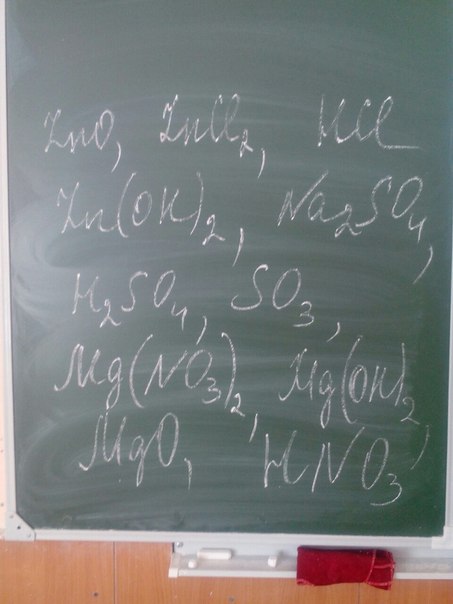 ZnO, ZnCl₂, HCl
Zn(OH)₂, Na₂SO₄,
H₂SO₄, SO₃,
Mg(NO₃)₂, Mg(OH)₂,
MgO, HNO₃